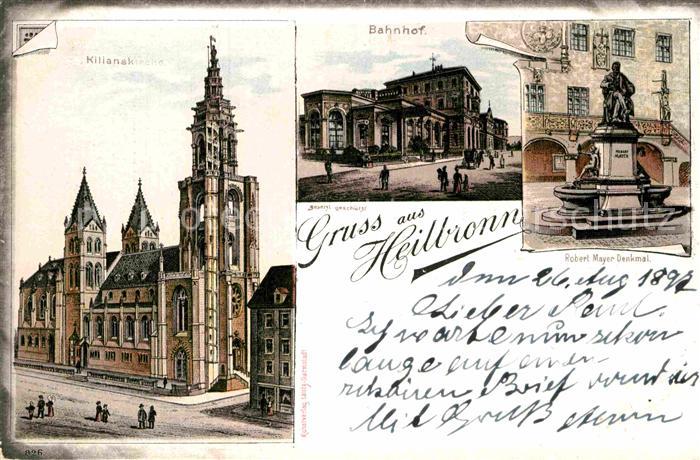 Kilianskirche.
Bahnhof.
Gesetzl. geschützt
Gruss aus
Heilbronn
ROBERT
MAYER
Robert Mayer Denkmal.
Kunstverlag Lautz, Darmstadt
826
den 26. Aug 1897
Lieber Paul.
Ich warte nun schon
lange auf einen
schönen Brief von dir
Mit Gruß